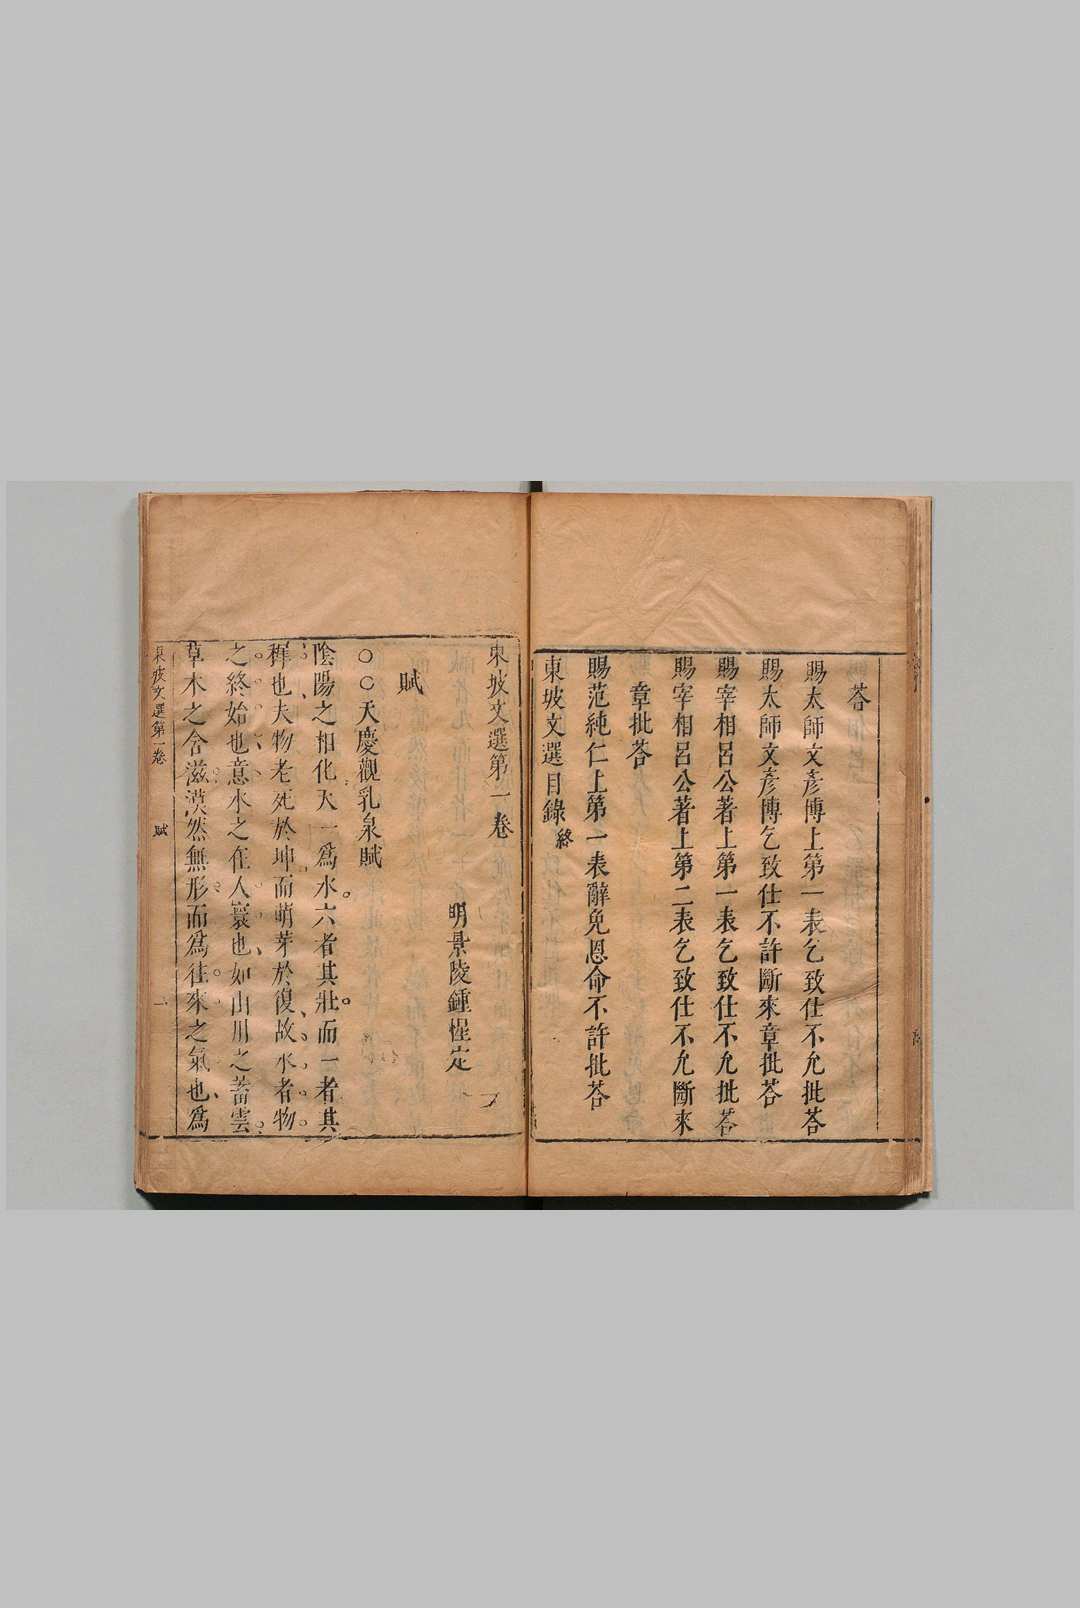 荅
賜太師文彥博上第一表乞致仕不允批荅
賜太師文彥博乞致仕不許斷來章批荅
賜宰相呂公著上第一表乞致仕不允批荅
賜宰相呂公著上第二表乞致仕不允斷來
章批荅
賜范純仁上第一表辭免恩命不許批荅
東坡文選目錄終
東坡文選第一卷
明景陵鍾惺定
賦
○○天慶觀乳泉賦
陰陽之相化天一爲水六者其壯而一者其
穉也夫物老死於坤而萌芽於復故水者物
之終始也意水之在人寰也如山川之蓄雲
草木之含滋漠然無形而爲往來之氣也爲
東坡文選第一卷 賦 一